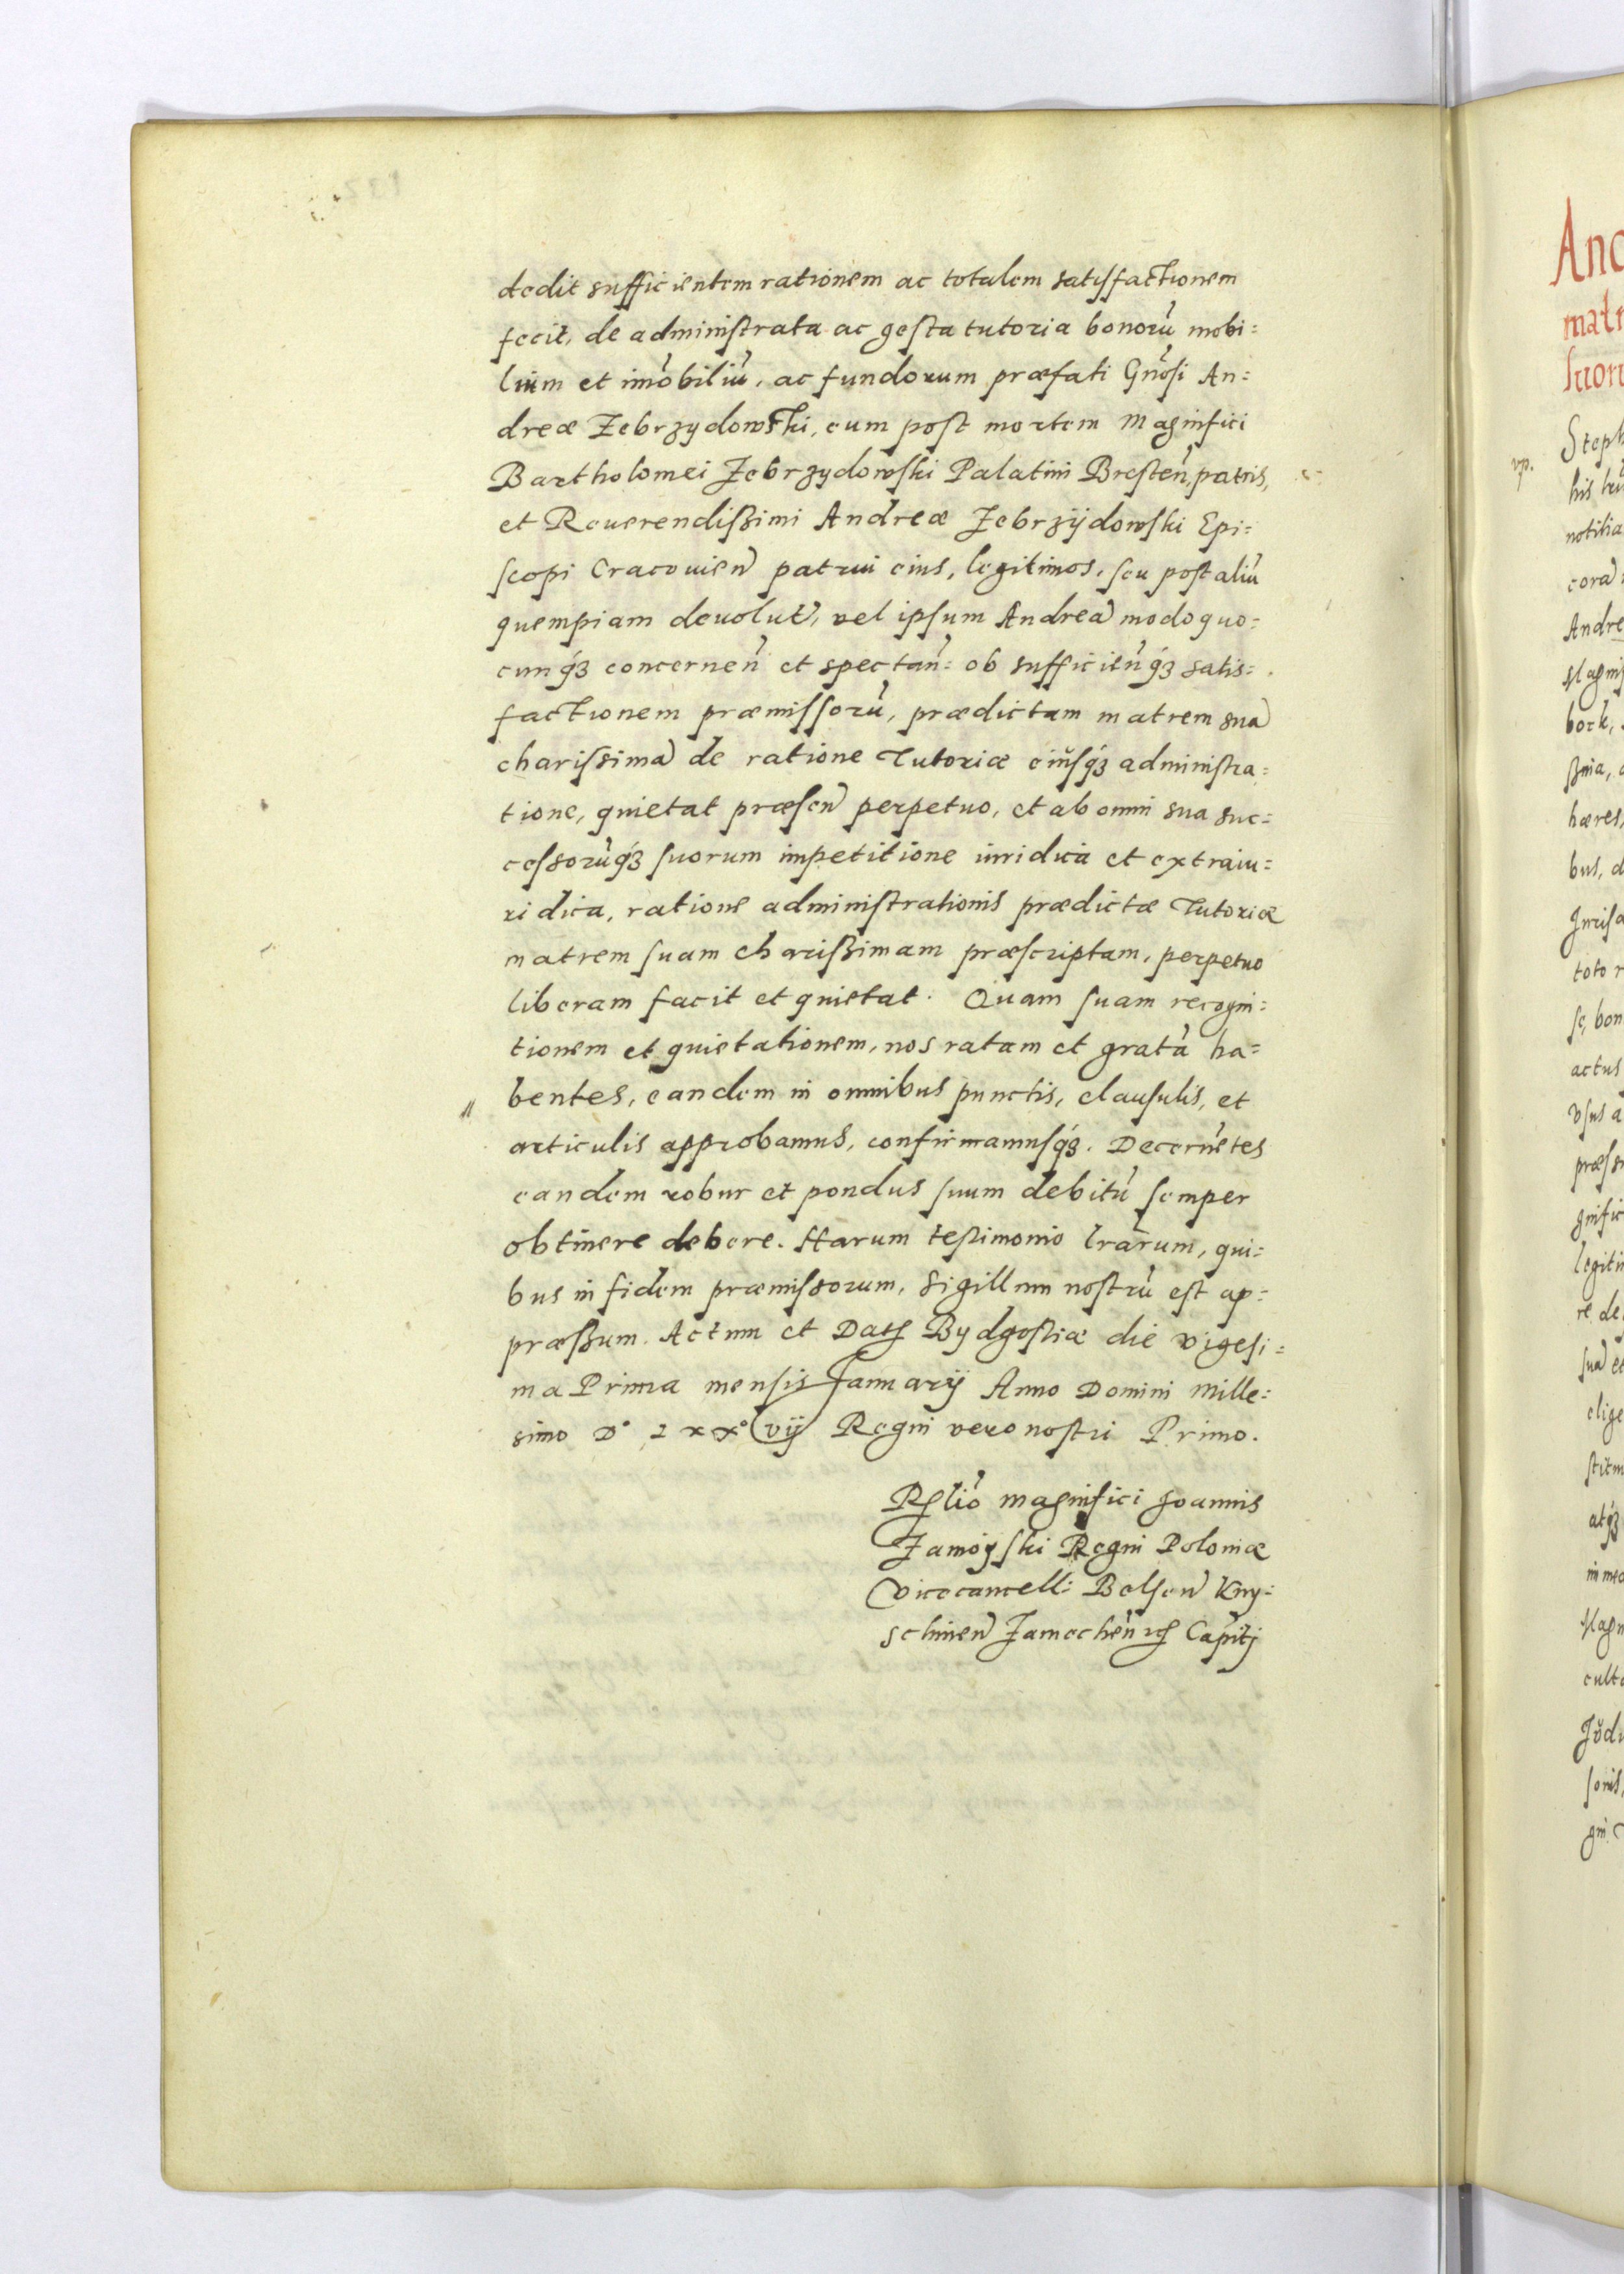 dedit sufficientem rationem ac totalem satisfactionem
fecit, de administrata ac gesta tutoria bonorũ mobi=
lium et imõbiliũ, ac fundorum præfati Gñosi An=
dreæ Zebrzydowski, cum post mortem Magnifici
Bartholomei Zebrzydowski Palatini Bresteñ, patris,
et Reuerendißimi Andreæ Zebrzÿdowski Epi=
scopi Cracouieñ patrui eius, legitimos, seu post aliũ
quempiam deuolut, vel ipsum Andreã modo quo=
cunqꝫ concerneñ et spectañ= ob sufficieñqꝫ satis=
factionem præmissorũ, prædictam matrem suã
charissimã de ratione Tutoriæ eiusqꝫ administra=
tione, quietat præseñ perpetuo, et ab omni sua suc=
cessorũqꝫ suorum impetitione iuridica et extraiu=
ridica, ratione administrationis prædictæ Tutoriæ
matrem suam charißimam præscriptam, perpetuo
liberam facit et quietat. Quam suam recogni=
tionem et quietationem, nos ratam et gratã ha=
bentes, eandem in omnibus punctis, clausulis, et
articulis approbamus, confirmamusqꝫ. Decernẽtes
eandem robur et pondus suum debitũ semper
obtinere debere. Harum testimonio lrãrum, qui=
bus in fidem præmissorum, sigillum nostrũ est ap=
præßum. Actum et Datꝭ Bydgostiæ die vigesi=
ma Prima mensis Januarÿ Anno Domini mille=
simo D° Lxx° vÿ Regni vero nostri Primo.
Rꝭlio magnifici Joannis
Zamoÿski Regni Poloniæ
Vicecancell: Belseñ Kny=
schineñ Zamecheñ Capitj